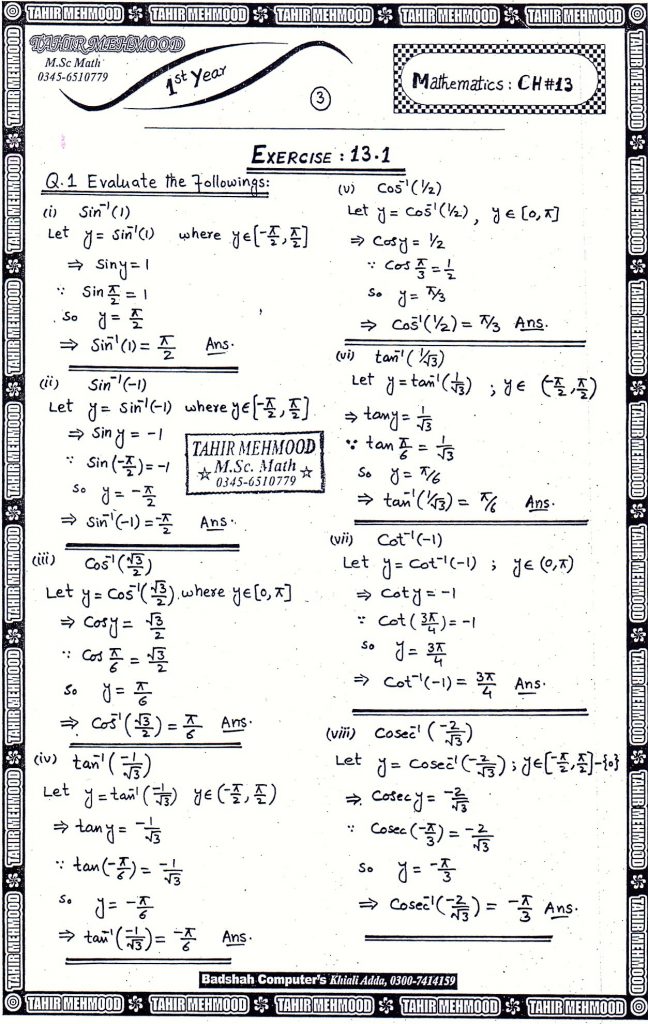 TAHIR MEHMOOD TAHIR MEHMOOD TAHIR MEHMOOD TAHIR MEHMOOD TAHIR MEHMOOD
TAHIR MEHMOOD
M.Sc Math
0345-6510779
1st Year
3
Mathematics : CH#13
EXERCISE : 13.1
Q.1 Evaluate the Followings:
(i) Sin⁻¹(1)
Let y = Sin⁻¹(1) where y∈[-π/2, π/2]
⇒ Siny = 1
∵ Sin π/2 = 1
So y = π/2
⇒ Sin⁻¹(1) = π/2 Ans.
(ii) Sin⁻¹(-1)
Let y = Sin⁻¹(-1) where y∈[-π/2, π/2]
⇒ Sin y = -1
∵ Sin(-π/2) = -1
So y = -π/2
⇒ Sin⁻¹(-1) = -π/2 Ans.
TAHIR MEHMOOD
☆ M.Sc. Math ☆
0345-6510779
(iii) Cos⁻¹(√3/2)
Let y = Cos⁻¹(√3/2) where y∈[0, π]
⇒ Cosy = √3/2
∵ Cos π/6 = √3/2
So y = π/6
⇒ Cos⁻¹(√3/2) = π/6 Ans.
(iv) tan⁻¹(-1/√3)
Let y = tan⁻¹(-1/√3) y∈(-π/2, π/2)
⇒ tan y = -1/√3
∵ tan(-π/6) = -1/√3
So y = -π/6
⇒ tan⁻¹(-1/√3) = -π/6 Ans.
(v) Cos⁻¹(1/2)
Let y = Cos⁻¹(1/2), y∈[0, π]
⇒ Cosy = 1/2
∵ Cos π/3 = 1/2
So y = π/3
⇒ Cos⁻¹(1/2) = π/3 Ans.
(vi) tan⁻¹(1/√3)
Let y = tan⁻¹(1/√3) ; y∈ (-π/2, π/2)
⇒ tany = 1/√3
∵ tan π/6 = 1/√3
So y = π/6
⇒ tan⁻¹(1/√3) = π/6 Ans.
(vii) Cot⁻¹(-1)
Let y = Cot⁻¹(-1) ; y∈ (0, π)
⇒ Coty = -1
∵ Cot(3π/4) = -1
So y = 3π/4
⇒ Cot⁻¹(-1) = 3π/4 Ans.
(viii) Cosec⁻¹(-2/√3)
Let y = Cosec⁻¹(-2/√3) ; y∈[-π/2, π/2]-{0}
⇒ Cosec y = -2/√3
∵ Cosec(-π/3) = -2/√3
So y = -π/3
⇒ Cosec⁻¹(-2/√3) = -π/3 Ans.
Badshah Computer's Khiali Adda, 0300-7414159
TAHIR MEHMOOD TAHIR MEHMOOD TAHIR MEHMOOD TAHIR MEHMOOD TAHIR MEHMOOD